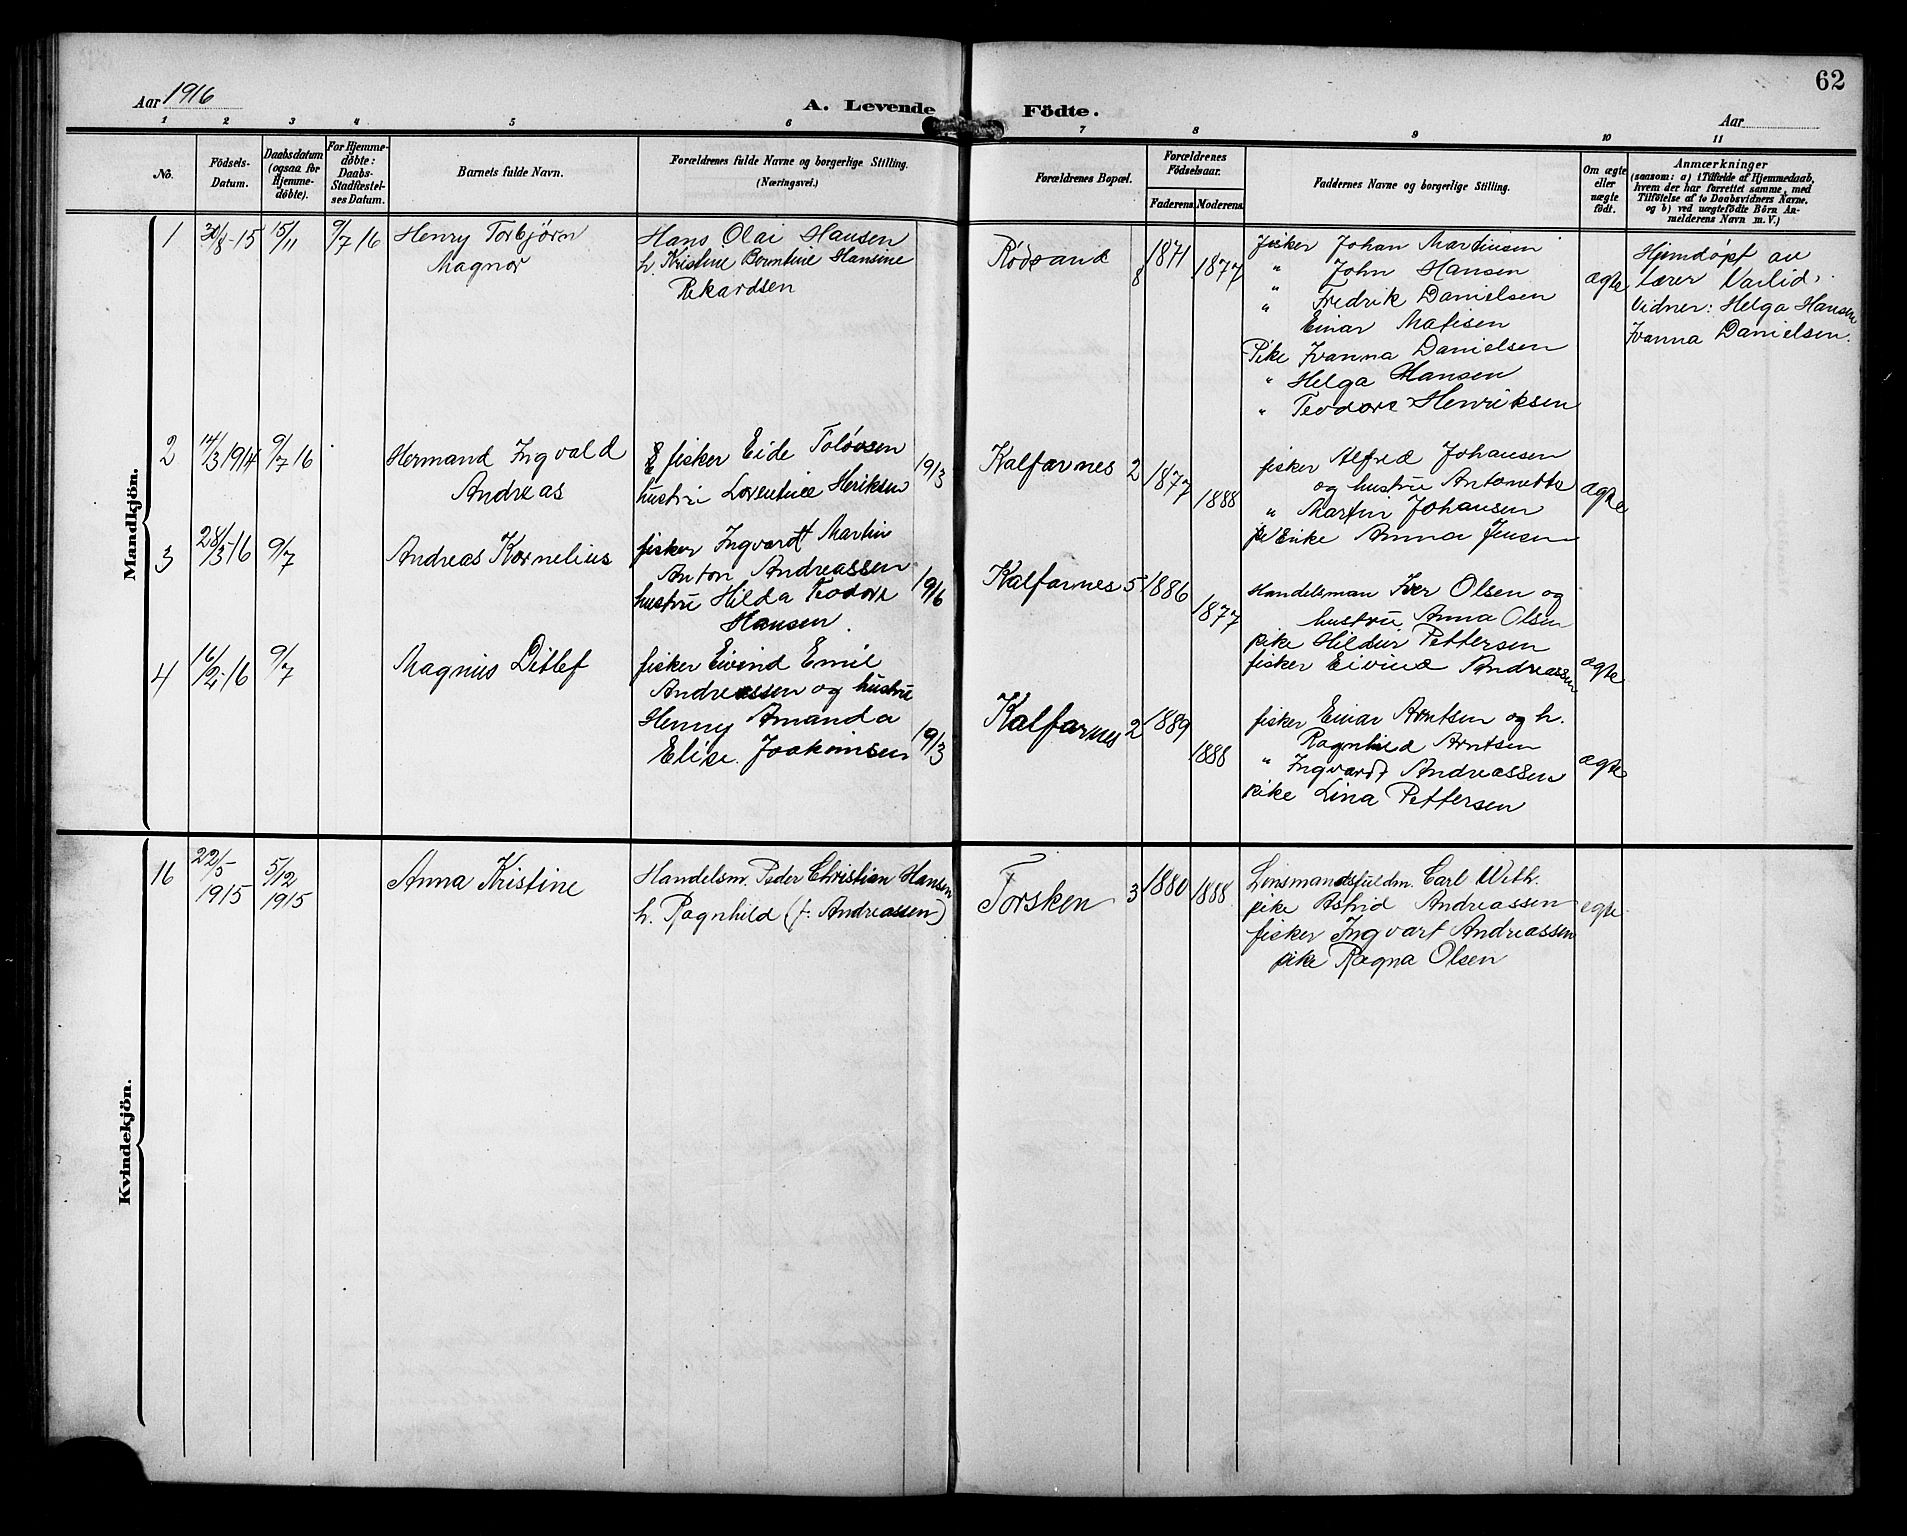 62
Aar 1916
A. Levende Födte.
Aar
1 2 3 4 5 6 7 8 9 10 11
No.
Födsels-
Datum.
Daabsdatum
(ogsaa for
Hjemme-
døbte).
For Hjemme-
døbte:
Daabs-
Stadfæstel-
ses Datum.
Barnets fulde Navn.
Forældrenes fulde Navne og borgerlige Stilling.
(Næringsvei.)
Forældrenes Bopæl.
Forældrenes
Födselsaar.
Faderens Moderens
Faddernes Navne og borgerlige Stilling.
Om ægte
eller
uægte
födt.
Anmærkninger
(saasom: a) i Tilfælde af Hjemmedaab,
hvem der har forrettet samme, med
Tilföielse af to Daabsvidners Navne,
og b) ved uægtefödte Börn An-
melderens Navn m. V.)
Mandkjön.
1
30/8-15
15/11
9/7 16
Henry Torbjørn
Magnor
Hans Olai Hansen
h. Kristine Berntine Hansine
Rikardsen
Rødsand
8
1871
1877
fisker Johan Martinsen
" John Hansen
" Fredrik Danielsen
Einar Matisen
Pike Ivanna Danielsen
" Helga Hansen
" Teodora Henriksen
ægte
Hjemdøpt av
lærer Varlid.
Vidner: Helga Hansen
Ivanna Danielsen.
2
14/3 1914
9/7 16
Hermand Ingvald
Andreas
fisker Eide Toløvsen
hustru Lorentine Heriksen
19/3
Kalfarnes 2
1877
1888
fisker Alfred Johansen
og hustru Antonette
" Martin Johansen
Enke Anna Jensen
ægte
3
28/3-16
9/7
Andreas Kornelius
fisker Ingvardt Martin
Anton Andreassen
hustru Hilda Teodora
Hansen.
19/6
Kalfarnes 5
1886
1877
Handelsman Iver Olsen og
hustru Anna Olsen
pike Hildur Pettersen
fisker Eivind Andreassen
ægte
4
16/2-16
9/7
Magnus Ditlef
fisker Eivind Emil
Andreassen og hustru
Henny Amanda
Elise Joakimsen
19/3
Kalfarnes 2
1889
1888
fisker Einar Arntsen og h.
Ragnhild Arntsen
" Ingvardt Andreassen
pike Lina Pettersen
ægte
Kvindekjön.
16
22/5-
1915
5/12
1915
Anna Kristine
Handelsm. Peder Christian Hansen
h. Ragnhild (f. Andreassen)
Torsken 3
1880
1888
Linsmandsfuldm. Carl With.
pike Astrid Andreassen
fisker Ingvart Andreassen
pike Ragna Olsen
egte